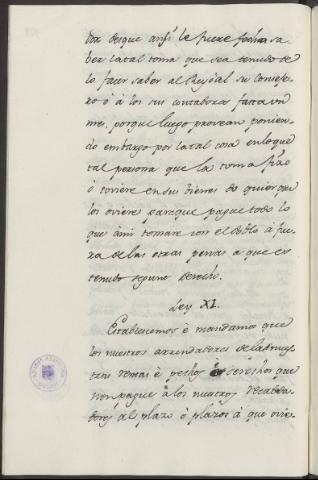 dor desque ansi le fuere fecha sa
ber la tal toma que sea tenudo de
lo facer saber al Rey ó al su Conseje
ro ó á los sus contadores fasta un
mes, porque luego provean ponien
do embargo por la tal cosa en lo que
tal persona que la toma fizo
ó toviere en sus bienes do quier que
los oviere para que pague todo lo
que ansi tomare con el doblo á fue
ra de las otras penas a que es
tenudo segund derecho.
Ley XI.
Establecemos é mandamos que
los nuestros arrendadores de las nues
tras rentas é pechos é derechos que
non pague á los nuestros recabda
dores al plazo ó plazos á que ovie